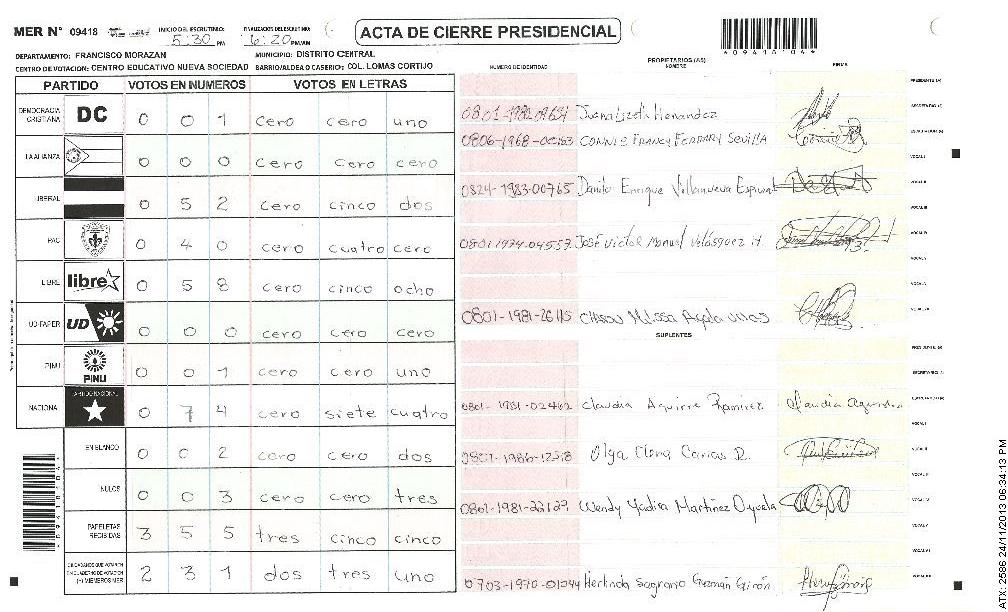 MER N° 09418 INICIO DEL ESCRUTINIO: 5:30 PM FINALIZACION DEL ESCRUTINIO: 6:20 PM/AM
ACTA DE CIERRE PRESIDENCIAL
DEPARTAMENTO: FRANCISCO MORAZAN MUNICIPIO: DISTRITO CENTRAL
CENTRO DE VOTACION: CENTRO EDUCATIVO NUEVA SOCIEDAD BARRIO/ALDEA O CASERIO: COL. LOMAS CORTIJO
NUMERO DE IDENTIDAD PROPIETARIOS (AS) NOMBRE FIRMA
PARTIDO VOTOS EN NUMEROS VOTOS EN LETRAS
DEMOCRACIA CRISTIANA DC 0 0 1 cero cero uno
LA ALIANZA 0 0 0 cero cero cero
LIBERAL 0 5 2 cero cinco dos
PAC 0 4 0 cero cuatro cero
LIBRE libre 0 5 8 cero cinco ocho
UD-FAPER UD 0 0 0 cero cero cero
PINU PINU 0 0 1 cero cero uno
NACIONAL PARTIDO NACIONAL 0 7 4 cero siete cuatro
EN BLANCO 0 0 2 cero cero dos
NULOS 0 0 3 cero cero tres
PAPELETAS RECIBIDAS 3 5 5 tres cinco cinco
CIUDADANOS QUE VOTARON EN CUADERNO DE VOTACION (+) MIEMBROS MER 2 3 1 dos tres uno
Hernandez
0806-1968- CONNIE FRANCY FERRARY SEVILLA
0824-1983-00765 Danilo Enrique Villanueva
0801-1974-04557 José Victor Manuel Velásquez H
0801-1981-26115
SUPLENTES
0801-1981-02462 Claudia Aguirre Ramirez
Olga Elena Carias R.
0801-1981-22127 Wendy Yadira Martinez Oyuela
Herlinda Sagrario Guzmán Girón
ATX-2586 24/11/2013 06:34:13 PM